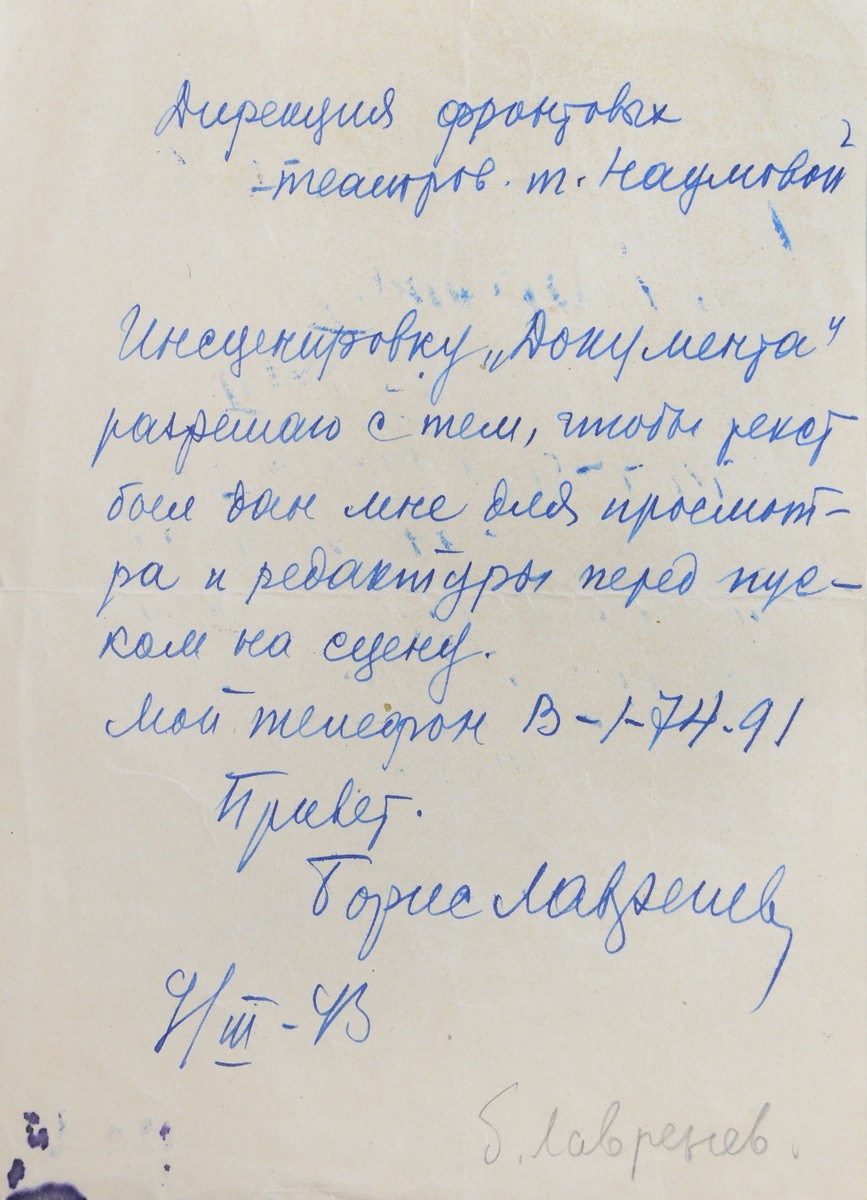 Дирекция фронтовых
театров. т. Наумовой
Инсценировку „Документа"
разрешаю с тем, чтобы текст
был дан мне для просмот-
ра и редактуры перед пус-
ком на сцену.
Мой телефон В-1-74-91
Привет.
Борис Лавренев
III-43
Б. Лавренев.